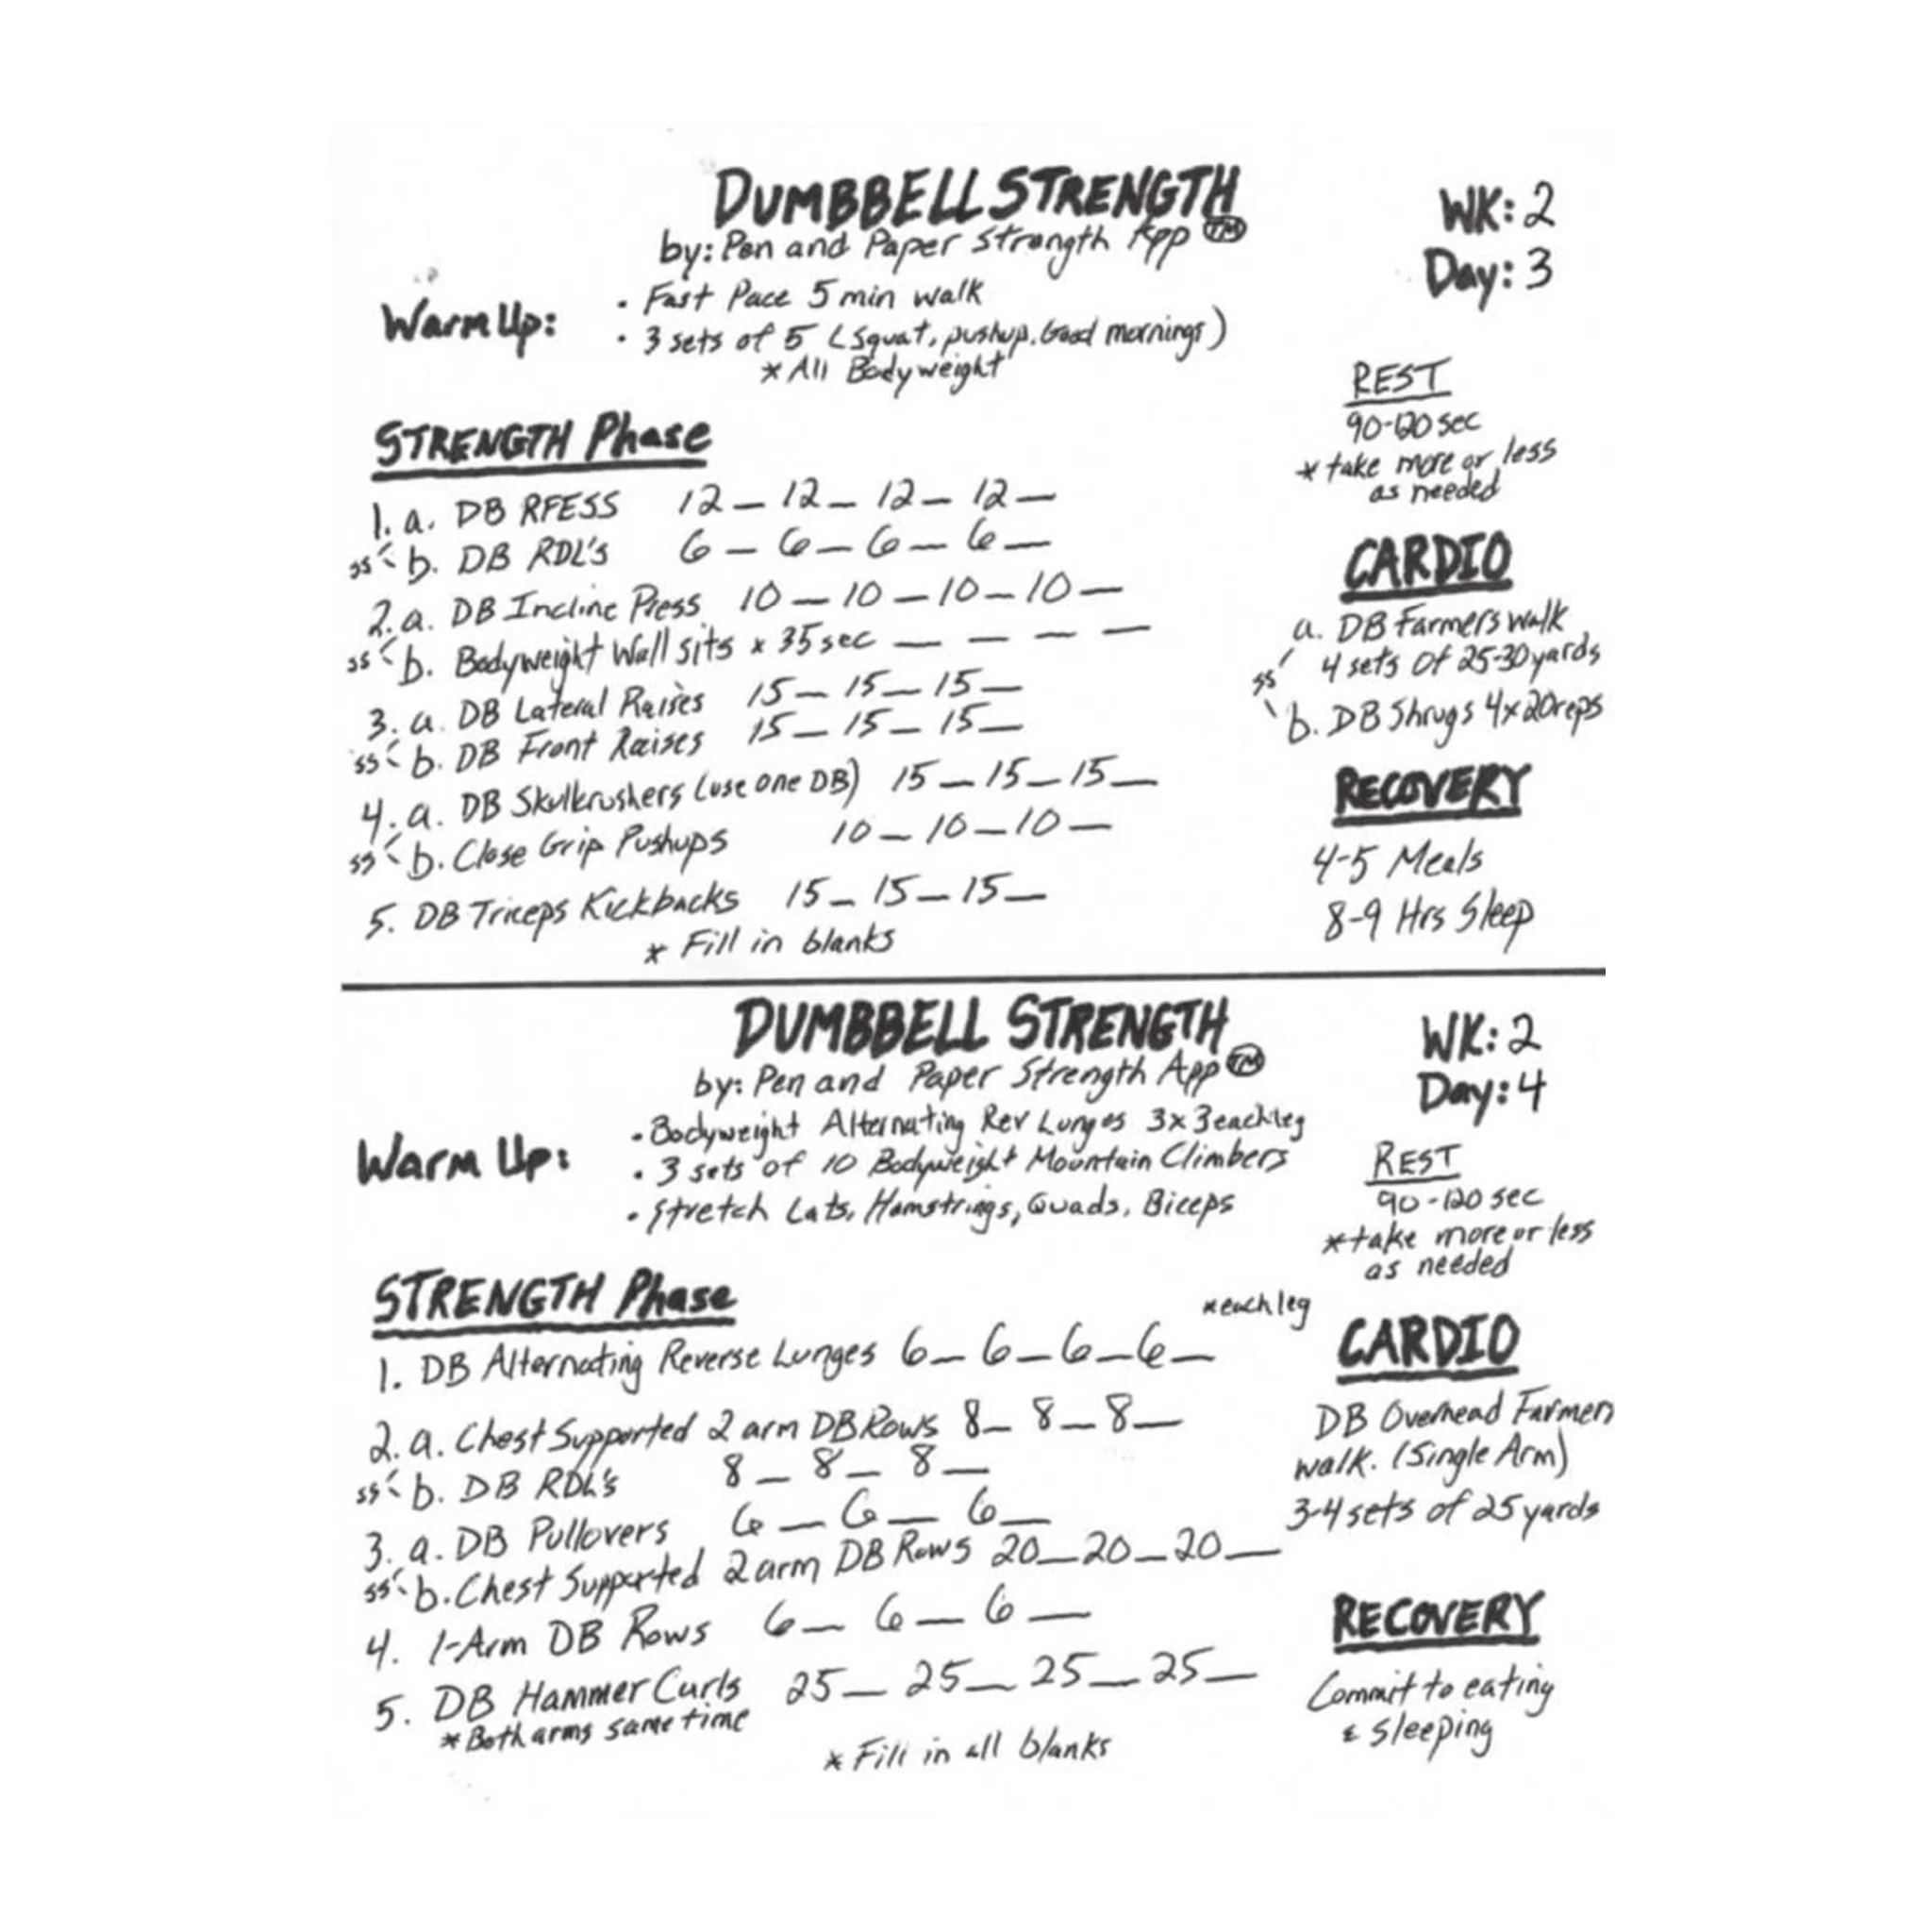 DUMBBELL STRENGTH
by: Pen and Paper Strength App TM
WK: 2
Day: 3
Warm Up:
• Fast Pace 5 min walk
• 3 sets of 5 (Squat, pushup, Good mornings)
* All Bodyweight
STRENGTH Phase
1. a. DB RFESS 12 _ 12 _ 12 _ 12 _
ss b. DB RDL's 6 _ 6 _ 6 _ 6 _
2. a. DB Incline Press 10 _ 10 _ 10 _ 10 _
ss b. Bodyweight Wall sits x 35 sec _ _ _ _
3. a. DB Lateral Raises 15 _ 15 _ 15 _
ss b. DB Front Raises 15 _ 15 _ 15 _
4. a. DB Skullkrushers (use one DB) 15 _ 15 _ 15 _
ss b. Close Grip Pushups 10 _ 10 _ 10 _
5. DB Triceps Kickbacks 15 _ 15 _ 15 _
* Fill in blanks
REST
90-120 sec
* take more or less
as needed
CARDIO
a. DB Farmers walk
4 sets of 25-30 yards
ss
b. DB Shrugs 4x20 reps
RECOVERY
4-5 Meals
8-9 Hrs Sleep
DUMBBELL STRENGTH
by: Pen and Paper Strength App TM
WK: 2
Day: 4
Warm Up:
• Bodyweight Alternating Rev Lunges 3x3 each leg
• 3 sets of 10 Bodyweight Mountain Climbers
• Stretch Lats, Hamstrings, Quads, Biceps
STRENGTH Phase
* each leg
1. DB Alternating Reverse Lunges 6 _ 6 _ 6 _ 6 _
2. a. Chest Supported 2 arm DB Rows 8 _ 8 _ 8 _
ss b. DB RDL's 8 _ 8 _ 8 _
3. a. DB Pullovers 6 _ 6 _ 6 _
ss b. Chest Supported 2 arm DB Rows 20 _ 20 _ 20 _
4. 1-Arm DB Rows 6 _ 6 _ 6 _
5. DB Hammer Curls 25 _ 25 _ 25 _ 25 _
* Both arms same time
* Fill in all blanks
REST
90-120 sec
* take more or less
as needed
CARDIO
DB Overhead Farmers
walk. (Single Arm)
3-4 sets of 25 yards
RECOVERY
Commit to eating
& sleeping